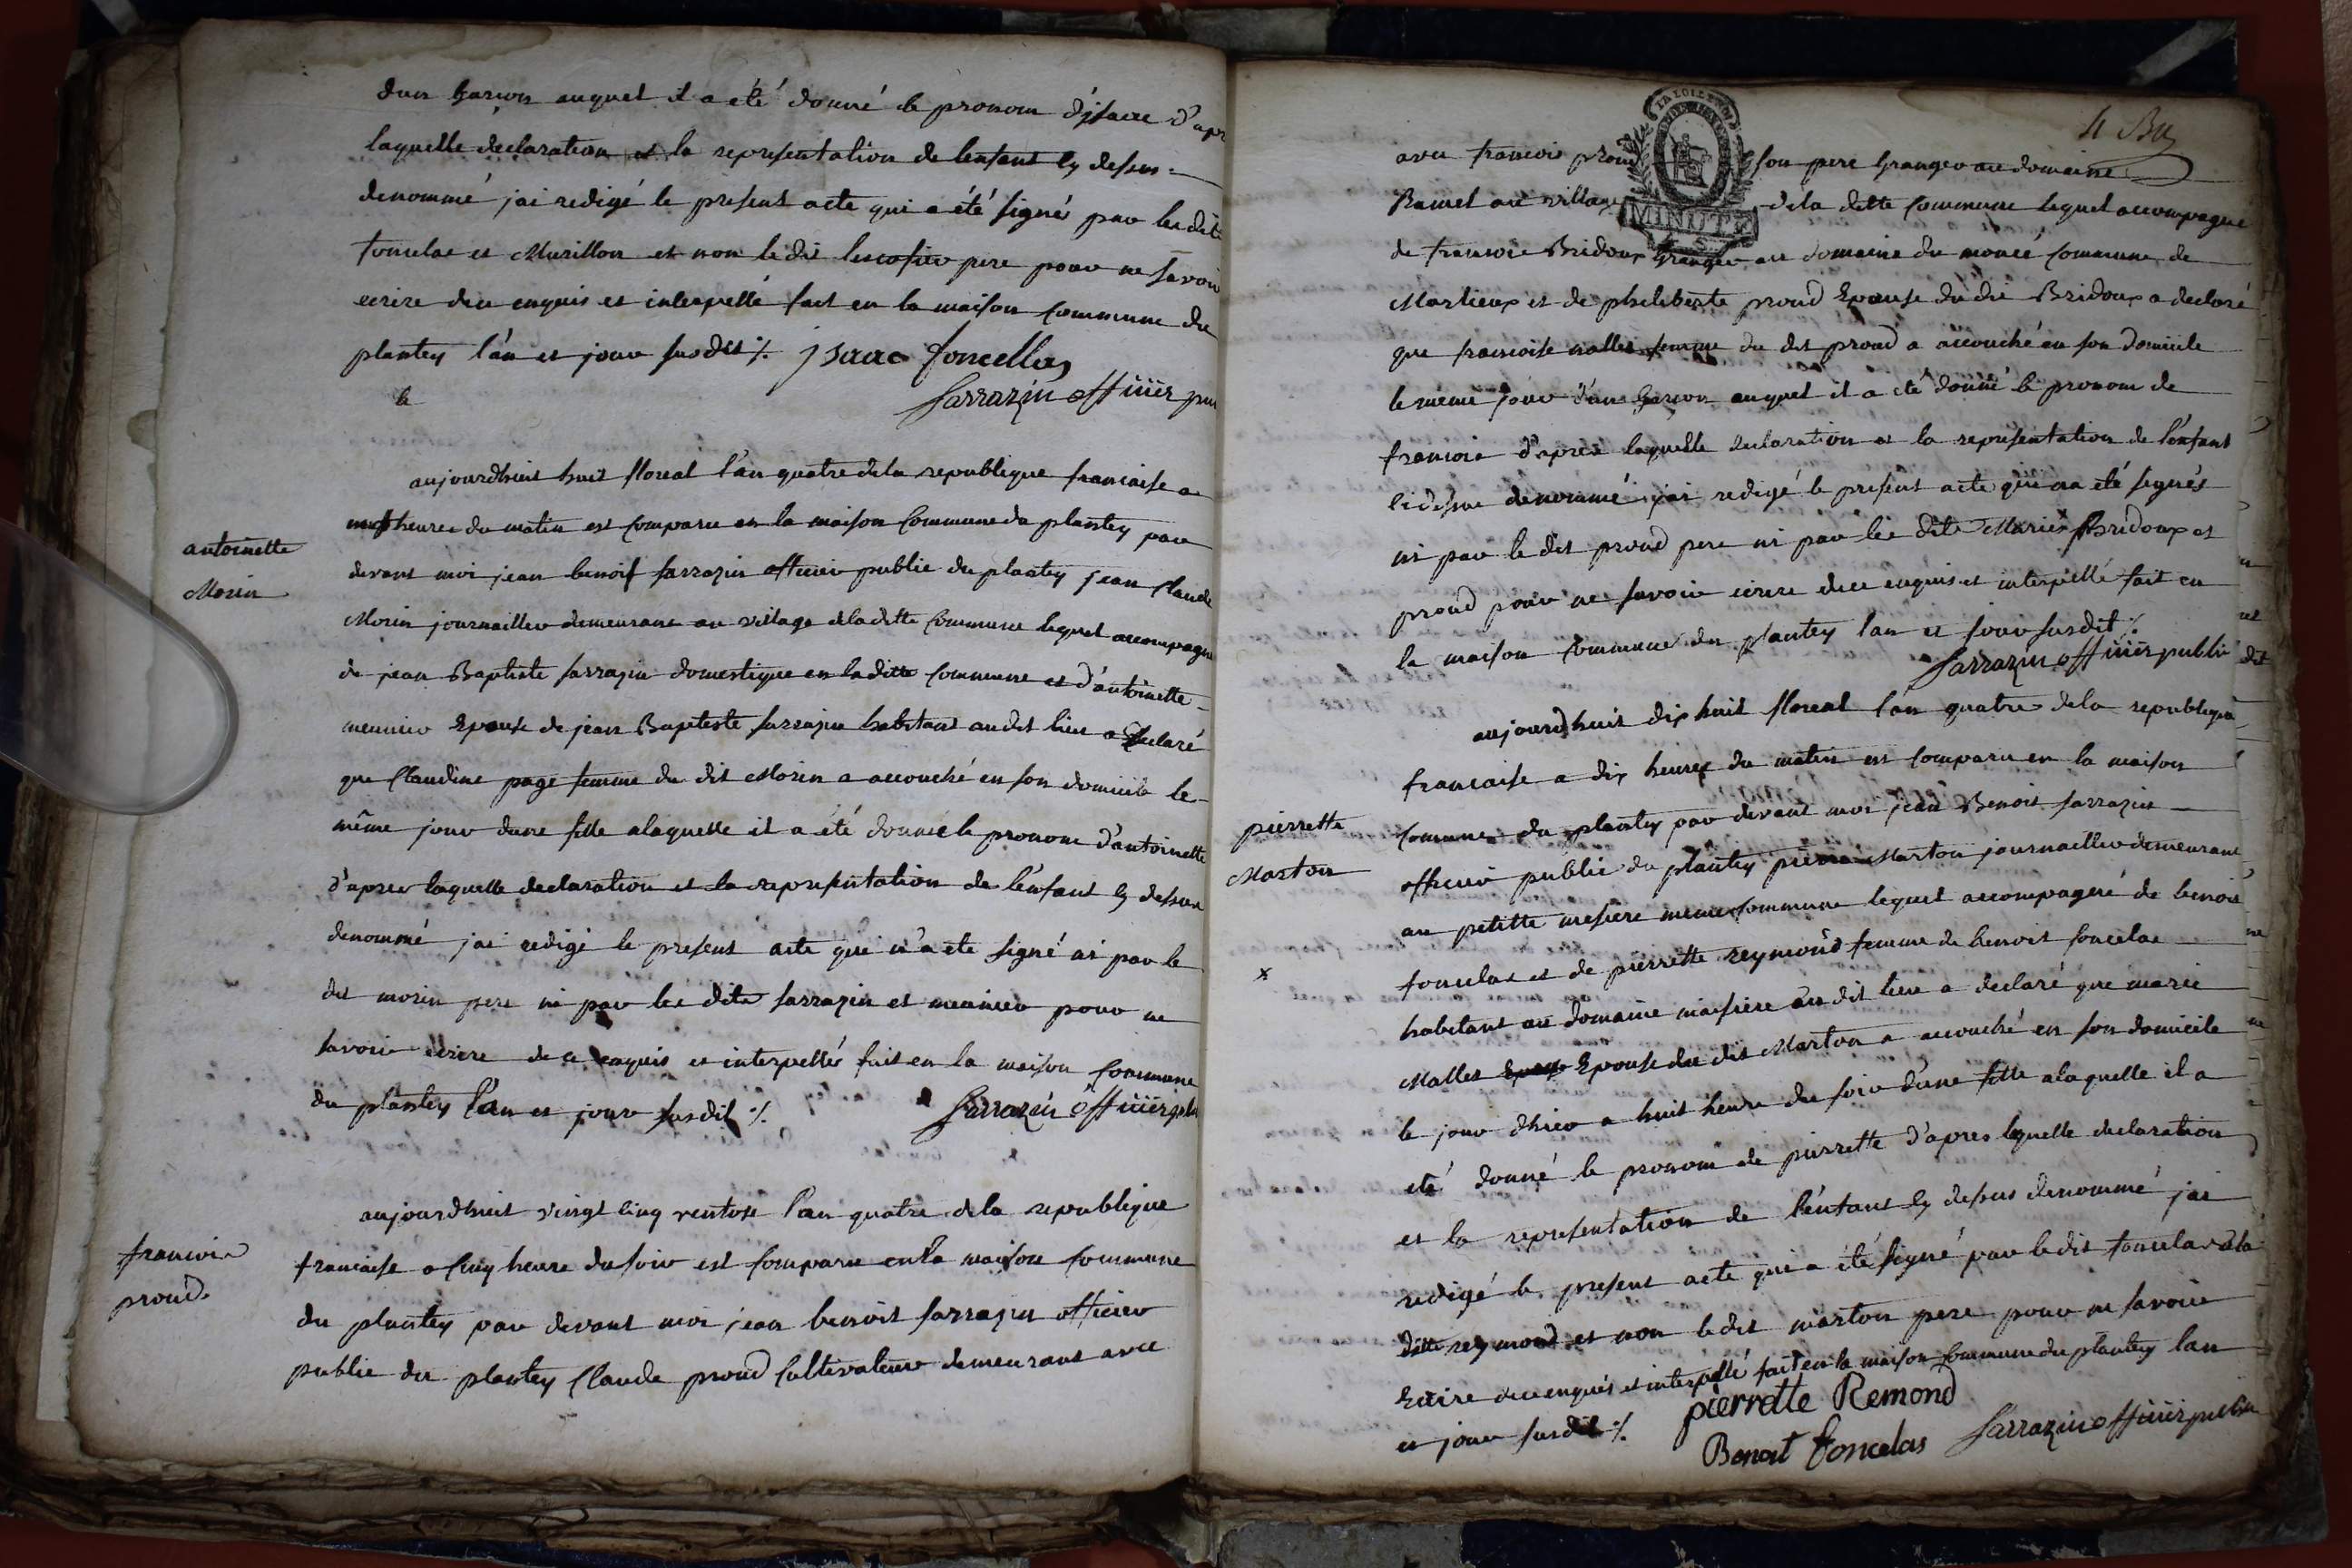 dun garcon auquel il a été donné le pronom d'jsaac d'apr
laquelle declaration et la representation de lenfant cy dessus
denommé jai redigé le present acte qui a été signé par les dits
foncelas et Murillon et non le dit pere pour ne savoir
ecrire de ce enquis et interpellé fait en la maison commune du
plantey l'an et jour susdit ./. jsaac foncellas
Sarrazin officier pu
aujourdhuit huit floreal l'an quatre dela republique francaise a
neuf heures du matin est comparu en la maison commune du plantey par
devant moi jean benoit sarrazin officier public du plantey jean claude
antoinette
Morin
Morin journaillier demeurant au village deladitte commune lequel accompagné
de jean Baptiste sarrazin domestique en laditte commune et d'antoinette
meunier Epouse de jean Bapteste sarrazin habitant audit lieu a declaré
que claudine page femme du dit Morin a accouché en son domicile le
même jour dune fille alaquelle il a été donné le pronom d'antoinette
d'apres laquelle declaration et la representation de l'enfant cy dessus
denommé jai redigé le present acte qui n'a été signé ni par le
dit morin pere ni par les dits sarrazin et meunier pour ne
savoir ecrire de ce enquis et interpellés fait en la maison commune
du plantey l'an et jour susdit ./. Sarrazin officier pub
aujourdhuit vingt cinq ventose l'an quatre dela republique
francois
proud
francaise a cinq heure du soir est comparu en la maison commune
du plantey par devant moi jean benoit sarrazin officier
public du plantey claude proud cultivateur demeurant avec
4 
avec francois proud son pere granger au domaine
Ramel au village dela ditte commune lequel accompagné
MINUTE
de francois Bridoux granger au domaine du moncé commune de
Marlieux et de pheliberte proud Epouse du dit Bridoux a declaré
que francoise malles femme du dit proud a accouché en son domicile
le meme jour d'un garcon auquel il a été donné le pronom de
francois d'apres laquelle declaration et la representation de l'enfant
cidessus denommé jai redigé le present acte qui na été signés
ni par le dit proud pere ni par les dits Mariés Bridoux et
proud pour ne savoir ecrire de ce enquis et interpellé fait en
la maison commune du plantey l'an et jour susdit ./.
Sarrazin officier public
aujourdhuit dix huit floreal l'an quatre dela republique
francaise a dix heures du matin est comparu en la maison
commune du plantey par devant moi jean Benoit sarrazin
pierrette
Marton
officier public du plantey pierre Marton journaillier demeurant
au petitte mesiere meme commune lequel accompagné de benoit
x
foncelas et de pierrette reymond femme de benoit foncelas
habitant au domaine maisiere au dit lieu a declaré que marie
Malles Epouse du dit Marton a accouché en son domicile
le jour dhier a huit heure du soir d'une fille alaquelle il a
été donné le pronom de pierrette d'apres laquelle declaration
et la representation de l'enfant cy dessus denommé jai
redigé le present acte qui a été signé par le dit foncelas et la
ditte reymond et non le dit marton pere pour ne savoir
Ecrire de ce enquis et interpellé fait en la maison commune du plantey lan
et jour susdit ./. pierrette Remond
Benoit foncelas Sarrazin officier public